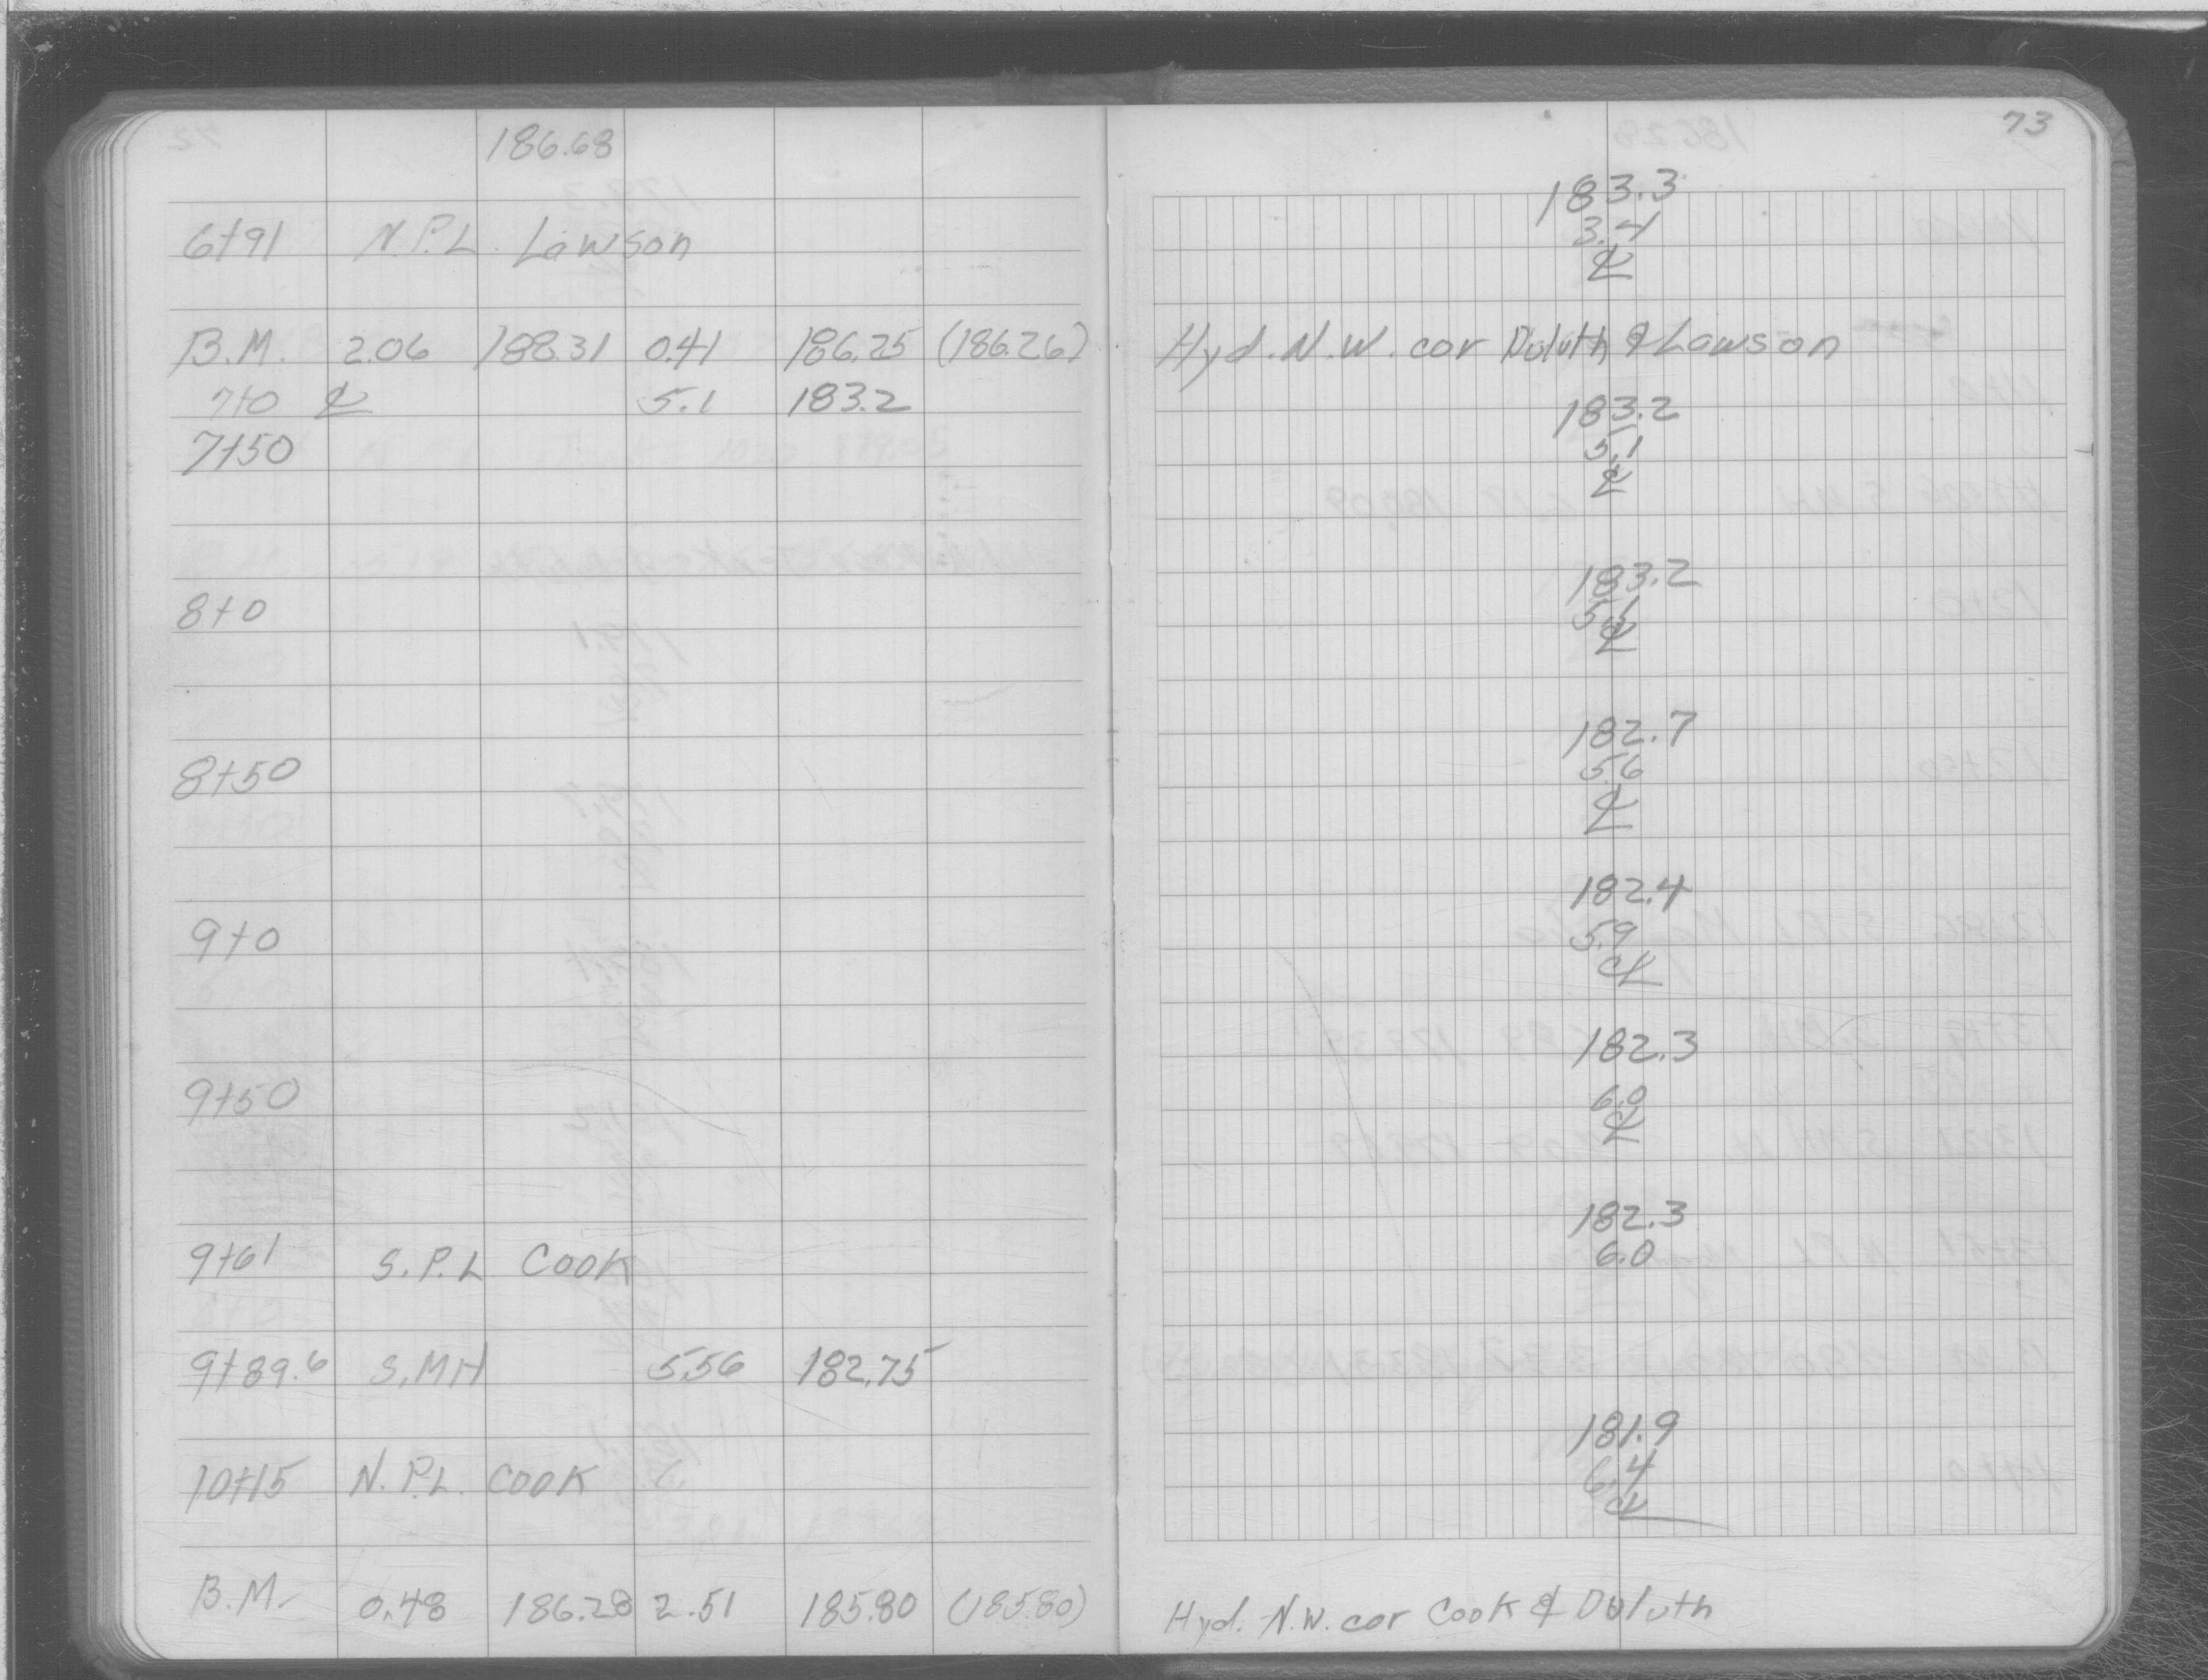 186.68
73
183.3
6+91 N.P.L. Lawson
3.4
℄
B.M. 2.06 188.31 0.41 186.25 (186.26) Hyd. N.W. cor Duluth & Lawson
7+0 ℄ 5.1 183.2
183.2
7+50
5.1
℄
183.2
8+0
5.1
℄
182.7
8+50
5.6
℄
182.4
9+0
5.9
℄
182.3
9+50
6.0
℄
182.3
9+61 S.P.L Cook
6.0
9+89.6 S.MH 5.56 182.75
181.9
10+15 N.P.L. Cook
6.4
℄
B.M. 0.48 186.28 2.51 185.80 (185.80) Hyd. N.W. cor Cook & Duluth